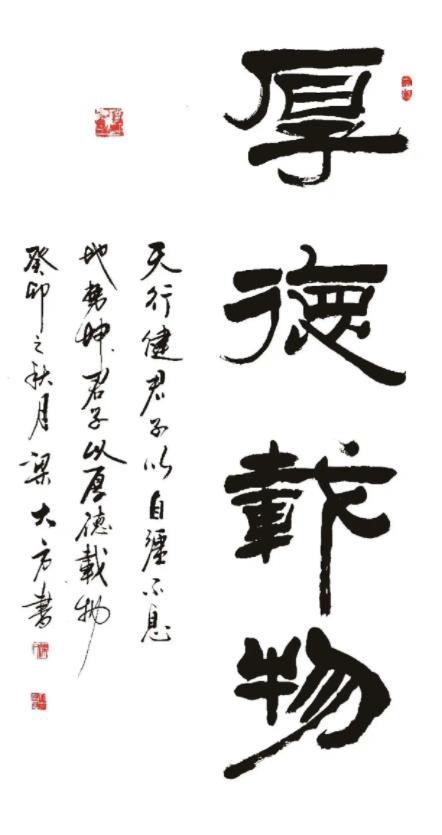 厚德載物
天行健君子以自彊不息
地勢坤君子以厚德載物
癸卯之秋月梁大方書